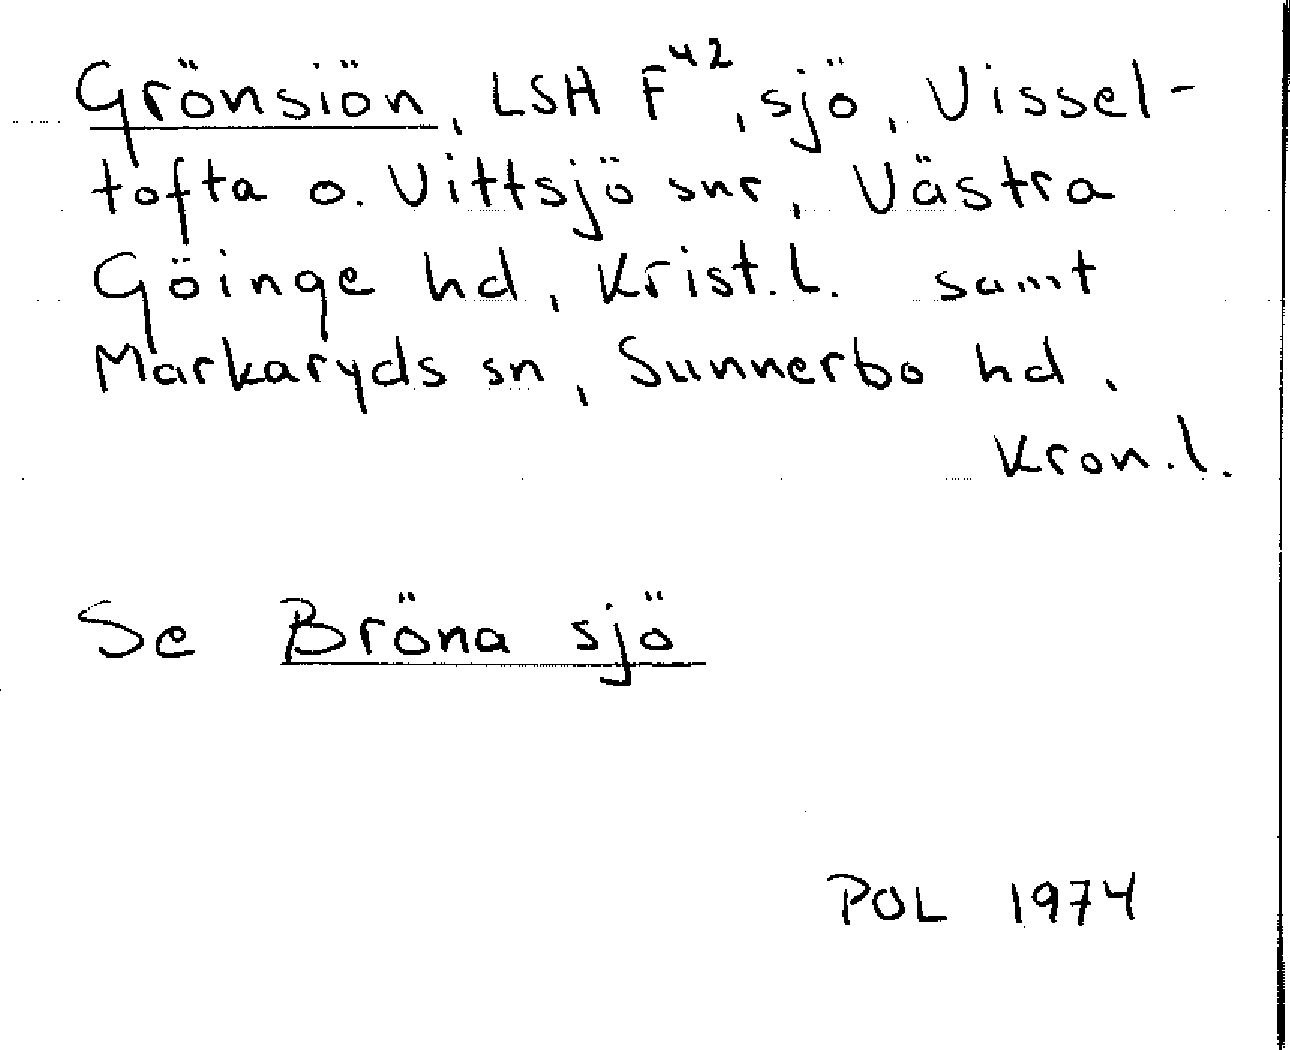 Grönsiön, LSH F⁴², sjö, Vissel-
tofta o. Vittsjö snr, Västra
Göinge hd, Krist.l. samt
Markaryds sn, Sunnerbo hd,
Kron.l.
Se Bröna sjö
POL 1974